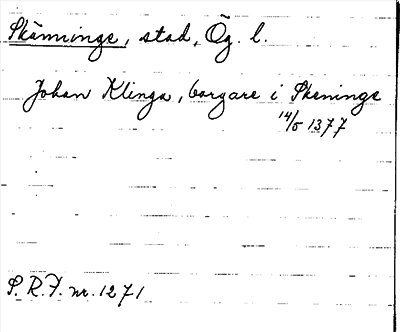 Skänninge, stad, Ög. l.
Johan Klinga, borgare i Skeninge
14/5 1377
S.R.F. nr. 1271